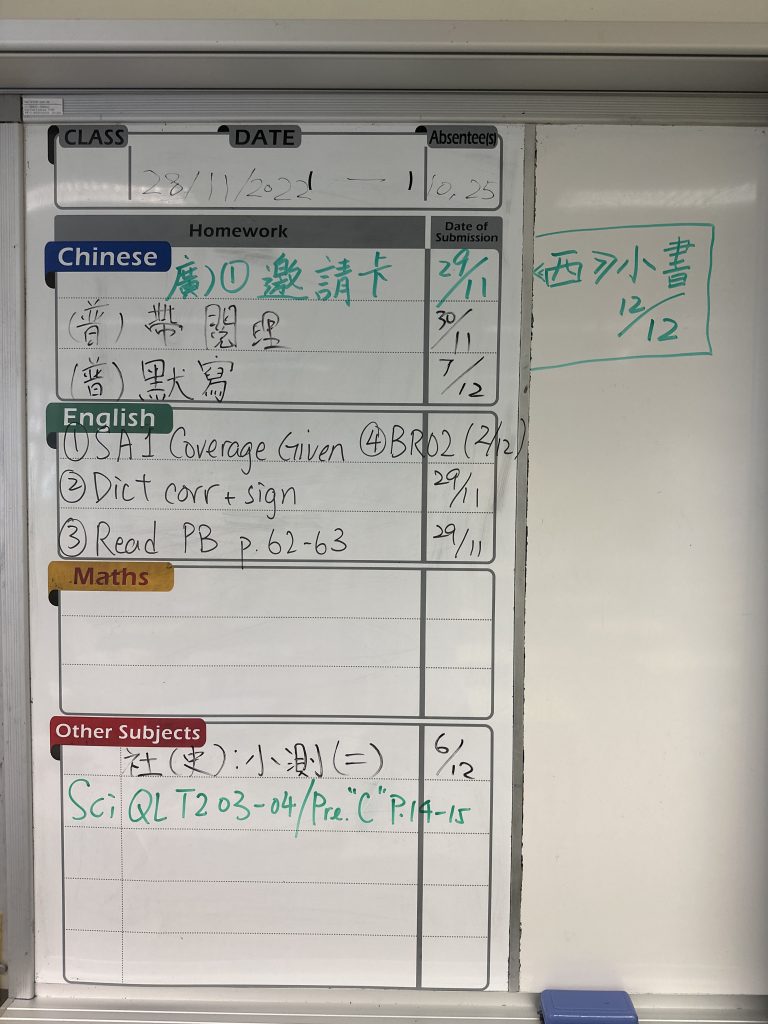 CLASS DATE Absentee(s)
28/11/2022 10, 25
Homework Date of Submission
Chinese
廣)① 邀請卡 29/11
(普) 帶閱理 30/11
(普) 默寫 7/12
English
① SA1 Coverage Given ④ BR02 (2/12)
② Dict corr + sign 29/11
③ Read PB p. 62-63 29/11
Maths
Other Subjects
社(史):小測(二) 6/12
Sci QL T2 03-04/Pre."C" P.14-15
≪西≫小書
12/12